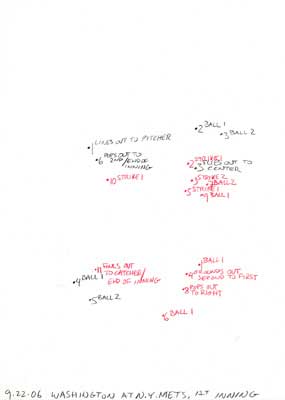 •2 BALL 1
•3 BALL 2
•1 LINES OUT TO PITCHER
•6 POPS OUT TO
2ND/END OF
INNING
•10 STRIKE 1
•2 STRIKE 1
•3 FLIES OUT TO
CENTER
•3 STRIKE 2
•7 BALL 2
•5 STRIKE 1
•9 BALL 1
•11 FOULS OUT
TO CATCHER/
END OF INNING
•4 BALL 1
•5 BALL 2
•1 BALL 1
•4 GROUNDS OUT
SECOND TO FIRST
•8 POPS OUT
TO RIGHT
•6 BALL 1
9.22.06 WASHINGTON AT N.Y. METS, 1ST INNING